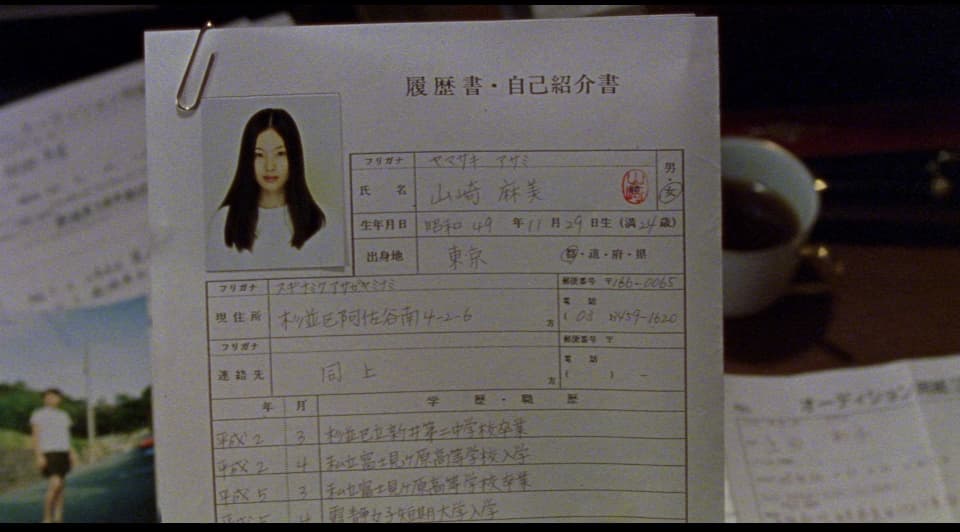 履歴書・自己紹介書
フリガナ ヤマサキ アサミ
氏名 山崎 麻美
男・女
生年月日 昭和 49 年 11 月 29 日生(満 24 歳)
出身地 東京 都・道・府・県
フリガナ スギナミクアサガヤミナミ 郵便番号 〒166-0065
現住所 杉並区阿佐谷南4-2-6 方 電話 (03 )3459-1620
フリガナ 郵便番号 〒
連絡先 同上 方 電話 ( ) -
年 月 学歴・職歴
平成2 3 杉並区立新井第二中学校卒業
平成2 4 私立富士見ヶ原高等学校入学
平成5 3 私立富士見ヶ原高等学校卒業
女子短期大学入学
オーディション